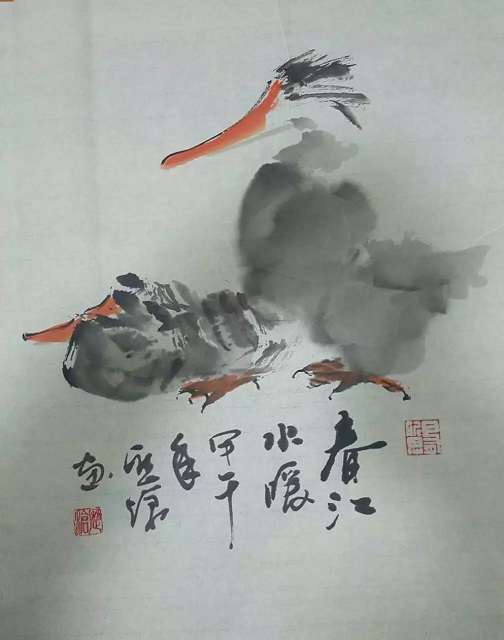 春江
水暖
甲午
年
画